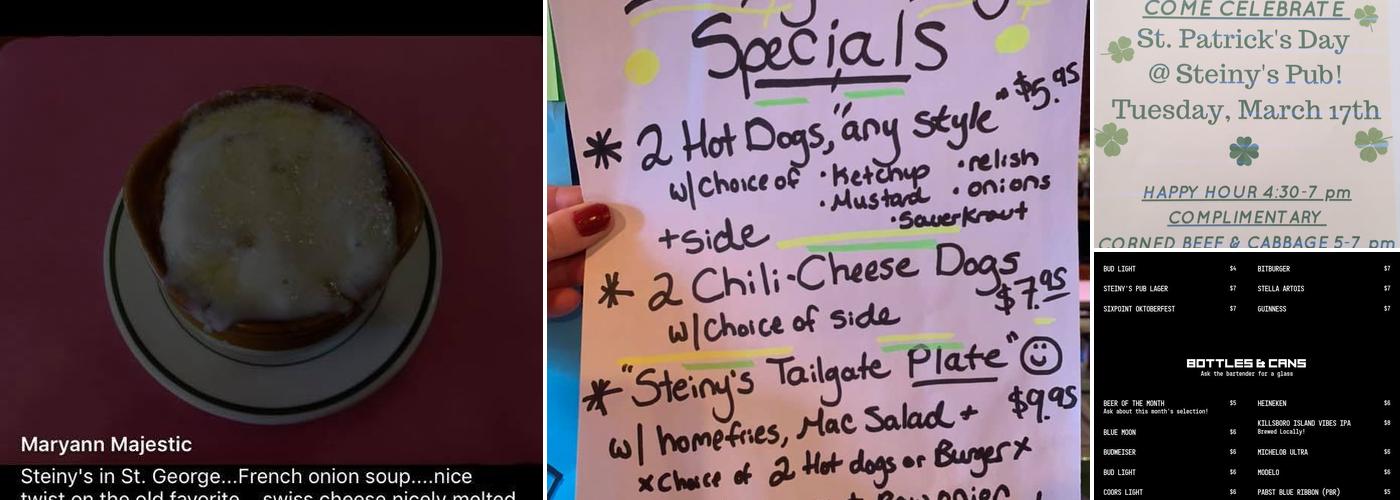 Maryann Majestic
Steiny's in St. George...French onion soup....nice
twist on the old favorite....swiss cheese nicely melted
Specials
* 2 Hot Dogs, "any style" $5.95
w/choice of • Ketchup • relish
• Mustard • onions
• Sauerkraut
+side
* 2 Chili-Cheese Dogs
$7.95
w/choice of side
* "Steiny's Tailgate Plate"
$9.95
w/ homefries, Mac Salad +
x choice of 2 Hot dogs or Burger x
COME CELEBRATE
St. Patrick's Day
@ Steiny's Pub!
Tuesday, March 17th
HAPPY HOUR 4:30-7 pm
COMPLIMENTARY
CORNED BEEF & CABBAGE 5-7 pm
BUD LIGHT $4 BITBURGER $7
STEINY'S PUB LAGER $7 STELLA ARTOIS $7
SIXPOINT OKTOBERFEST $7 GUINNESS $7
BOTTLES & CANS
Ask the bartender for a glass
BEER OF THE MONTH $5 HEINEKEN $6
Ask about this month's selection!
KILLSBORO ISLAND VIBES IPA $8
Brewed Locally!
BLUE MOON $6
BUDWEISER $6 MICHELOB ULTRA $6
BUD LIGHT $6 MODELO $6
COORS LIGHT $6 PABST BLUE RIBBON (PBR) $5